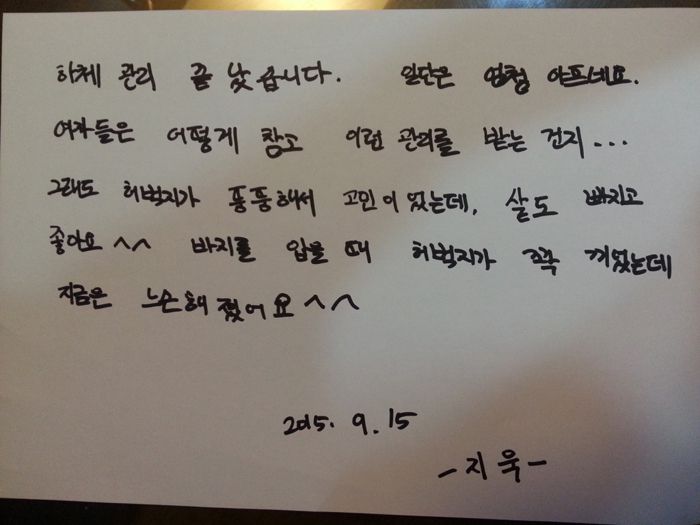 하체 관리 끝 낫습니다. 일단은 엄청 아프네요.
여자들은 어떻게 참고 이런 관리를 받는 건지...
그래도 허벅지가 퉁퉁해서 고민이 었는데, 살도 빠지고
좋아요 ^^ 바지를 입을 때 허벅지가 꽉 끼었는데
지금은 느슨해 졌어요 ^^
2015. 9. 15
- 지욱 -